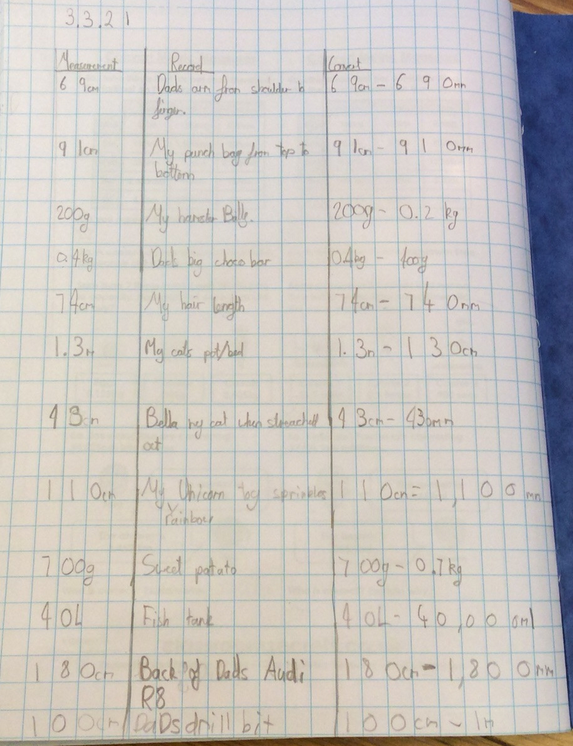 3.3.21
Measurement Record Convert
69cm Dads arm from shoulder to 69cm - 690mm
finger.
91cm My punch bag from top to 91cm - 910mm
bottom
200g My hamster Belle. 200g - 0.2kg
0.4kg Dark big choco bar 0.4kg - 400g
74cm My hair length 74cm - 740mm
1.3m My cats pot/bed 1.3m - 130cm
43cm Bella my cat when 43cm - 430mm
out
110cm My Unicorn toy sprinkles 110cm = 1,100mm
rainbow
700g Sweet potato 700g - 0.7kg
40L Fish tank 40L - 40,000ml
180cm Back of Dads Audi 180cm - 1,800mm
R8
100cm DaDs drill bit 100cm - 1m